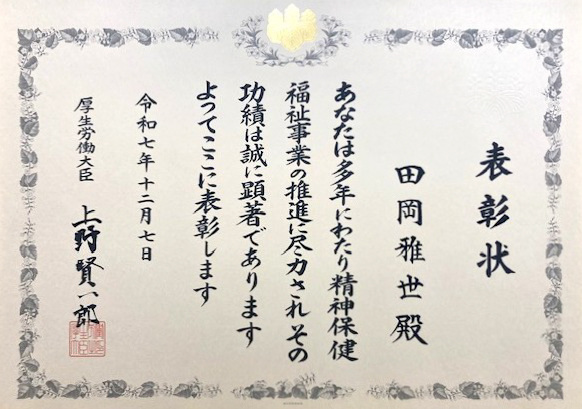 表彰状
田岡雅世殿
あなたは多年にわたり精神保健
福祉事業の推進に尽力されその
功績は誠に顕著であります
よってここに表彰します
令和七年十二月七日
厚生労働大臣 上野賢一郎